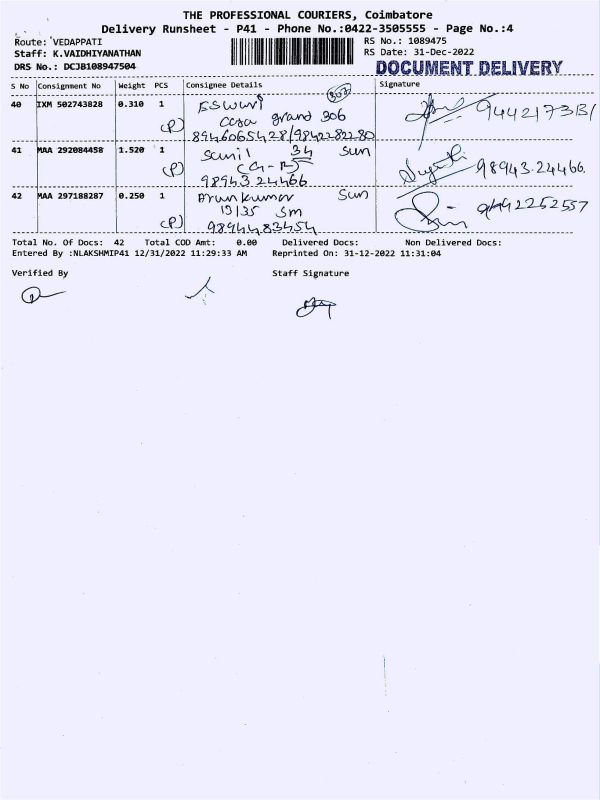 THE PROFESSIONAL COURIERS, Coimbatore
Delivery Runsheet - P41 - Phone No.:0422-3505555 - Page No.:4
Route: VEDAPPATI
RS No.: 1089475
Staff: K.VAIDHIYANATHAN
RS Date: 31-Dec-2022
DRS No.: DCJB108947504
DOCUMENT DELIVERY
S No Consignment No Weight PCS Consignee Details Signature
40 IXM 502743828 0.310 1 Eswari
(P) casa grand 306
8946065428/9842282280
41 MAA 292084458 1.520 1 Sunil 34 Sun
(P) (G-R) 98943.24466.
98943 24466
42 MAA 297188287 0.250 1 Arunkumar Sun
(P) 13/35 Sm
9894483454
Total No. Of Docs: 42 Total COD Amt: 0.00 Delivered Docs: Non Delivered Docs:
Entered By :NLAKSHMIP41 12/31/2022 11:29:33 AM Reprinted On: 31-12-2022 11:31:04
Verified By Staff Signature